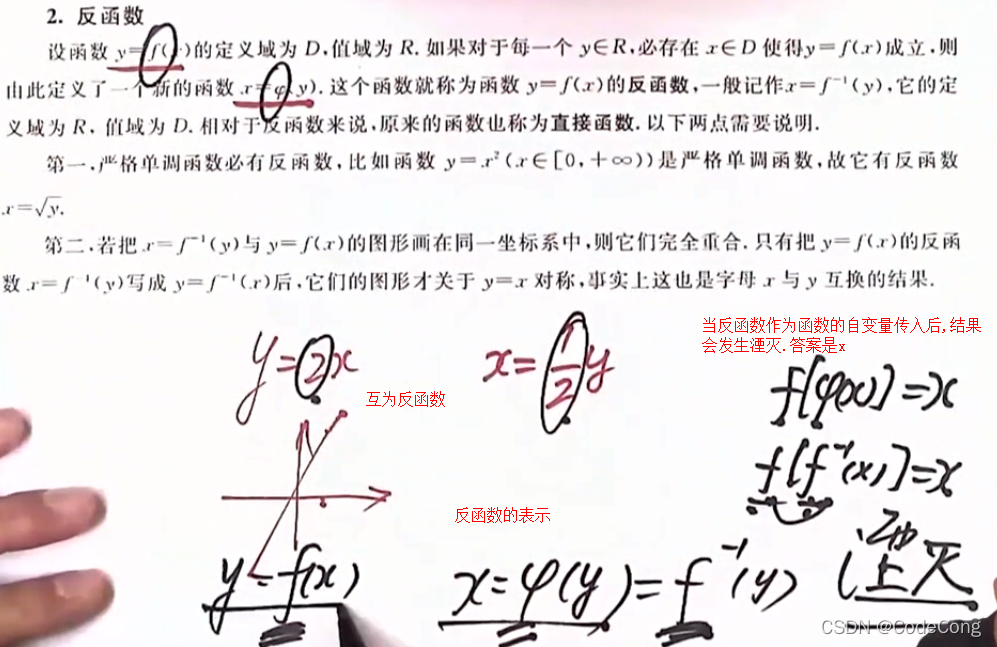 2. 反函数
设函数 y=f(x)的定义域为 D,值域为 R. 如果对于每一个 y∈R,必存在 x∈D 使得y=f(x)成立,则
由此定义了一个新的函数 x=φ(y). 这个函数就称为函数 y=f(x)的反函数,一般记作x=f⁻¹(y),它的定
义域为 R, 值域为 D. 相对于反函数来说,原来的函数也称为直接函数. 以下两点需要说明.
第一,严格单调函数必有反函数,比如函数 y=x²(x∈[0,+∞))是严格单调函数,故它有反函数
x=√y.
第二,若把 x=f⁻¹(y)与 y=f(x)的图形画在同一坐标系中,则它们完全重合. 只有把 y=f(x)的反函
数 x=f⁻¹(y)写成 y=f⁻¹(x)后,它们的图形才关于 y=x 对称,事实上这也是字母 x 与 y 互换的结果.
当反函数作为函数的自变量传入后,结果
会发生湮灭.答案是x
y=2x
x=1/2y
f[φ(x)]=x
互为反函数
f[f⁻¹(x)]=x
反函数的表示
y=f(x)
x=φ(y)=f⁻¹(y)
CSDN @CodeCong